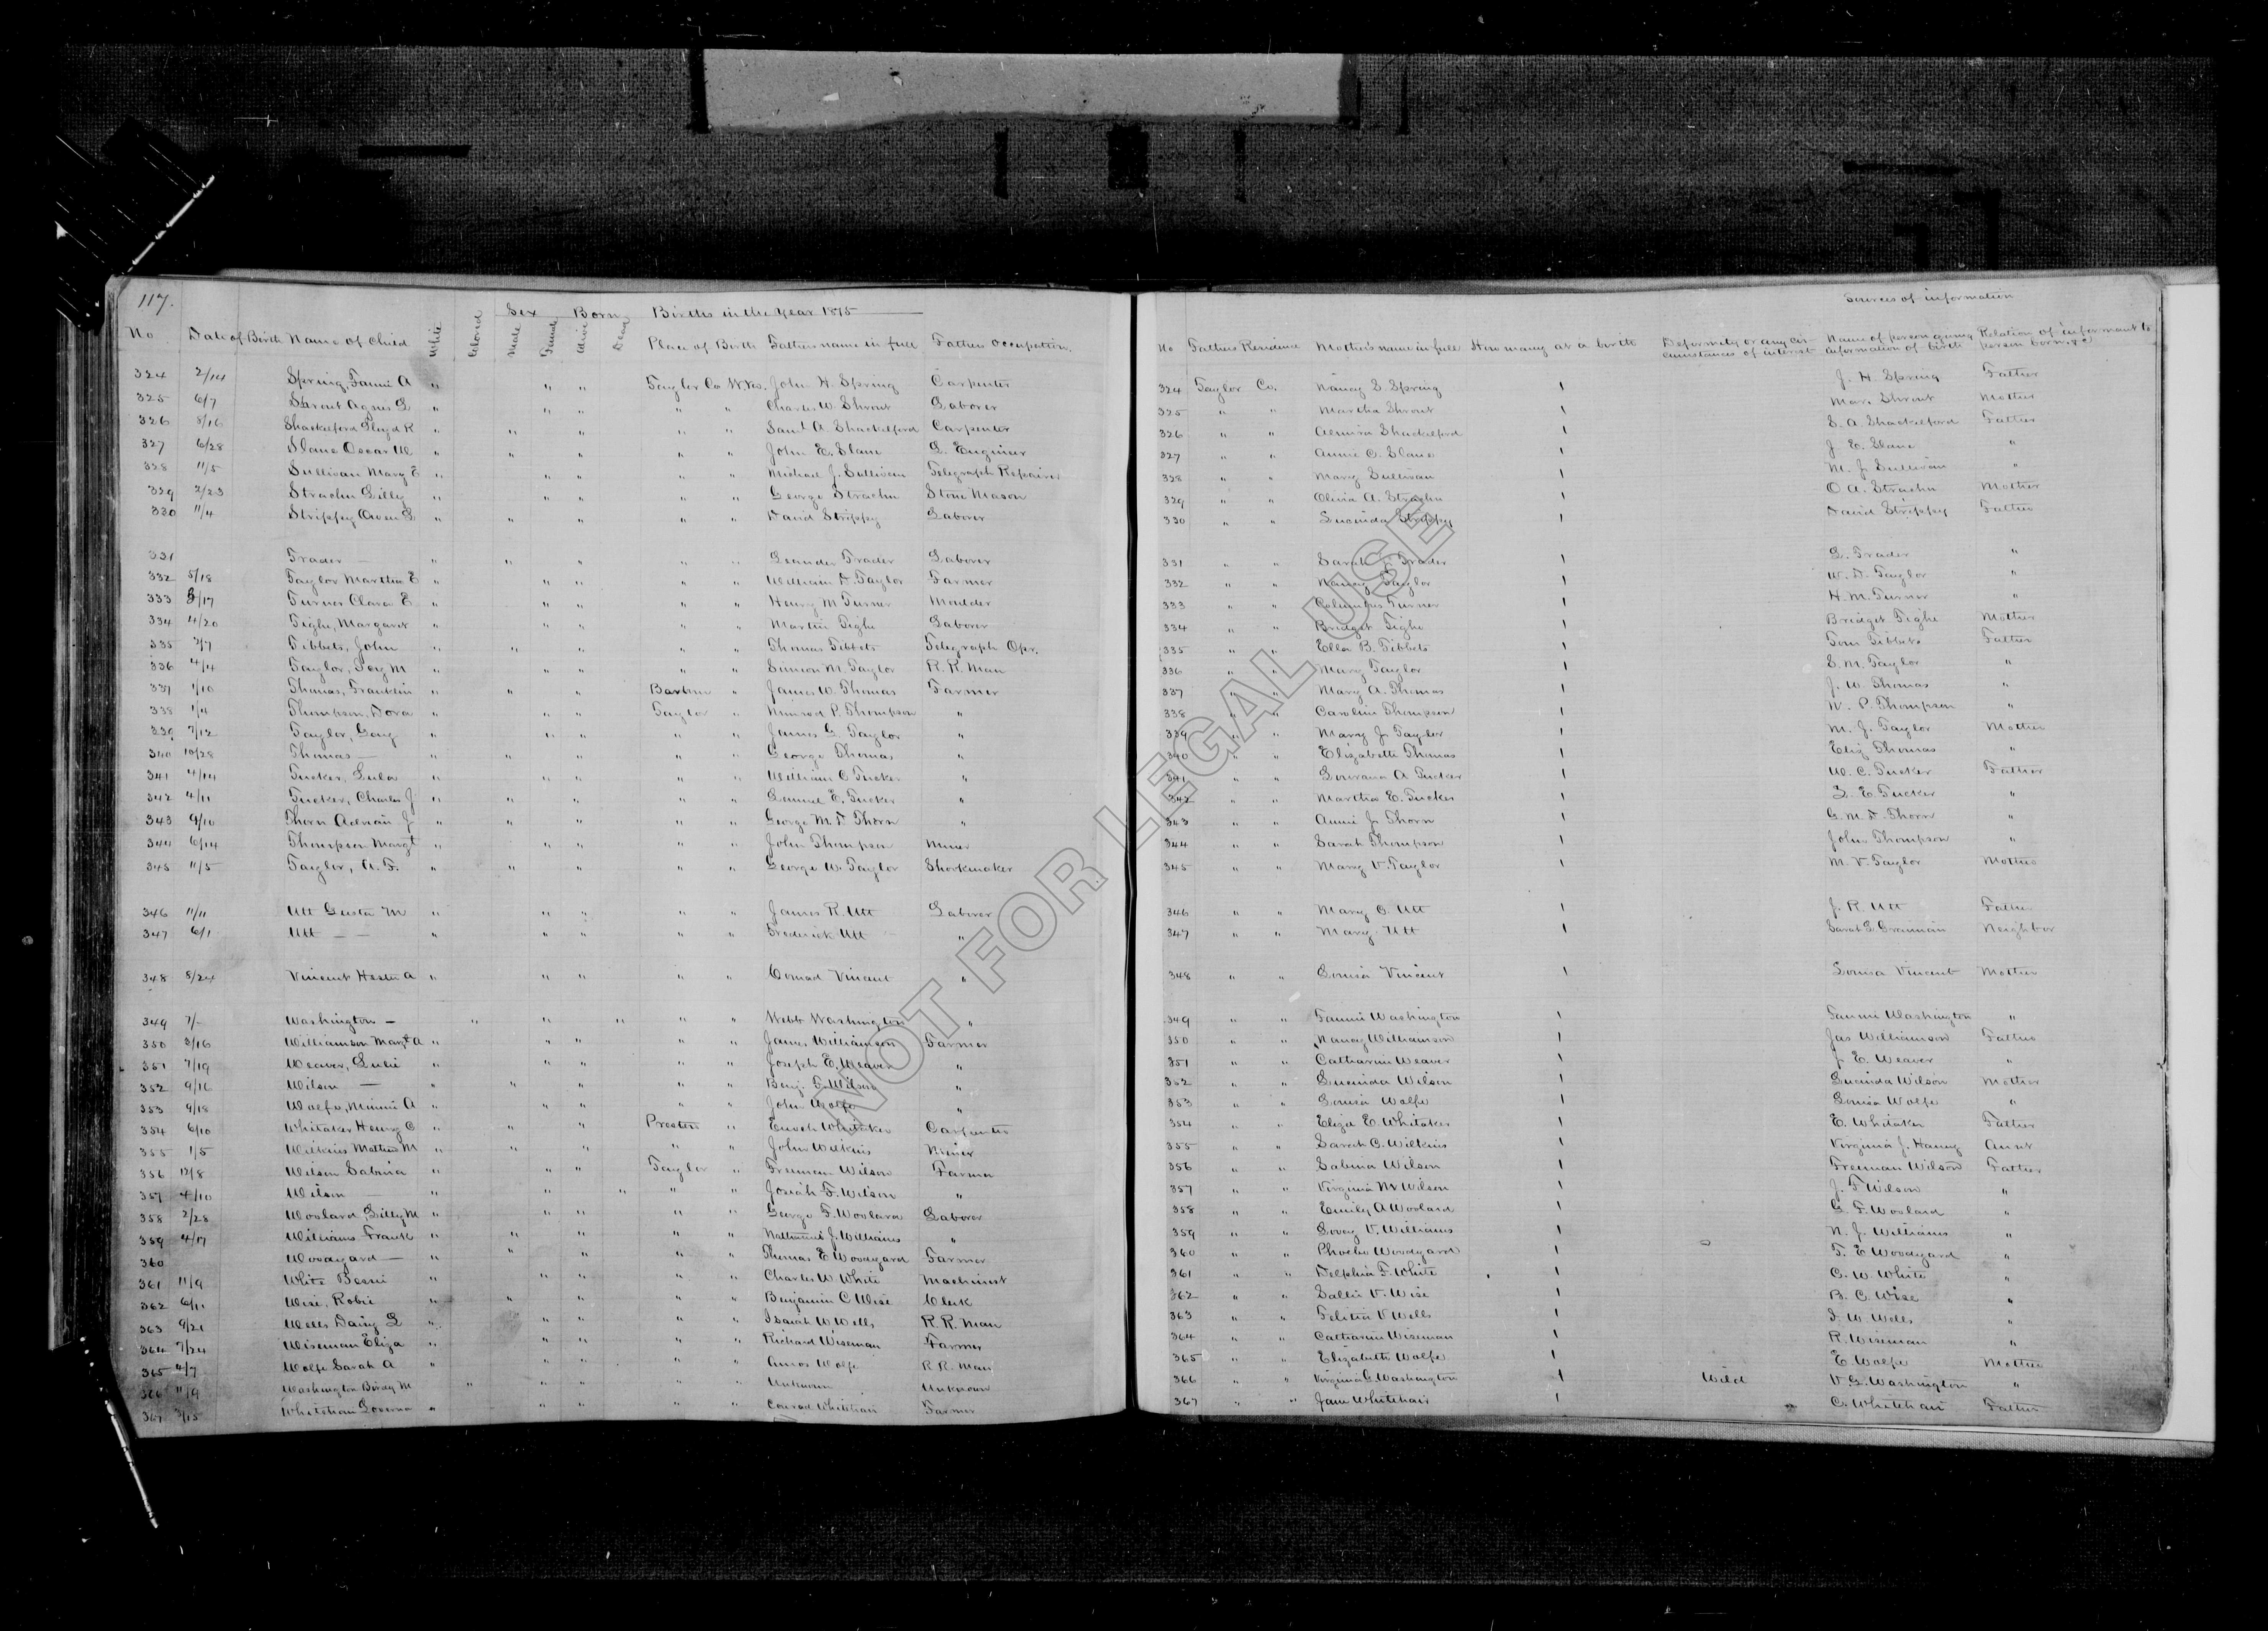 117.
Births in the Year 1875
Sources of information
No Date of Birth Name of Child White Colored Sex Male Female Born Alive Dead Place of Birth Fathers name in full Fathers Occupation. No Fathers Residence Mother's name in full How many at a birth Deformity or any circumstances of interest Name of person giving information of birth Relation of informant to person born. &c
324 2/14 Spring, Fanni A " " " Taylor Co W.Va. John H. Spring Carpenter 324 Taylor Co. Nancy S Spring 1 J. H. Spring Father
325 6/7 Shrout Agnes L " " " " " Charles W. Shrout Laborer 325 " " Martha Shrout 1 Mar. Shrout Mother
326 8/16 Shackelford Lloyd R " " " " " Saml A. Shackelford Carpenter 326 " " Almira Shackelford 1 S. A. Shackelford Father
327 6/28 Slane Oscar W " " " " " John E. Slane L. Engineer 327 " " Annie C. Slane 1 J E. Slane "
328 11/5 Sullivan Mary E " " " " " Michael J. Sullivan Telegraph Repairer 328 " " Mary Sullivan 1 M. J Sullivan "
329 2/23 Strachn Lilly " " " " " George Strachn Stone Mason 329 " " Olivia A. Strachn 1 O A. Strachn Mother
330 11/4 Strippy Owen L " " " " " David Strippy Laborer 330 " " Lucinda Strippy 1 David Strippy Father
331 Trader — " " " " " Leander Trader Laborer 331 " " Sarah Trader 1 L. Trader "
332 5/18 Taylor Martha E " " " " " William D. Taylor Farmer 332 " " Nancy Taylor 1 W. D. Taylor "
333 3/17 Turner Clara E " " " " " Henry M Turner Moulder 333 " " Columbus Turner 1 H. M. Turner "
334 4/20 Tighe, Margaret " " " " " Martin Tighe Laborer 334 " " Bridget Tighe 1 Bridget Tighe Mother
335 Tibbets, John " " " " " Thomas Tibbets Telegraph Opr. 335 " " Ella B. Tibbets 1 Tom Tibbets Father
336 4/4 Taylor, Ivy M " " " " " Simon M. Taylor R. R. Man 336 " " Mary Taylor 1 S. M. Taylor "
337 1/10 Thomas, Franklin " " " Barbour " James W. Thomas Farmer 337 " " Mary A. Thomas 1 J. W. Thomas "
338 1/4 Thompson, Dora " " " Taylor " Nimrod P. Thompson " 338 " " Caroline Thompson 1 N. P. Thompson "
339 7/12 Taylor, " " " " " James G. Taylor " 339 " " Mary J. Taylor 1 M. J. Taylor Mother
340 10/28 Thomas — " " " " " George Thomas " 340 " " Elizabeth Thomas 1 Eliz Thomas "
341 4/14 Tucker, Lula " " " " " William C Tucker " 341 " " Lourana A Tucker 1 W. C. Tucker Father
342 4/11 Tucker, Charles J " " " " " Lemuel E. Tucker " 342 " " Martha E. Tucker 1 L. E. Tucker "
343 9/10 Thorn Adrian J " " " " " George M. D. Thorn " 343 " " Annie J. Thorn 1 G. M. D. Thorn "
344 6/14 Thompson Margt " " " " " John Thompson Miner 344 " " Sarah Thompson 1 John Thompson "
345 11/5 Taylor, A. F. " " " " " George W. Taylor Shoemaker 345 " " Mary V. Taylor 1 M. V. Taylor Mother
346 11/11 Utt Gusta M " " " " " James R. Utt Laborer 346 " " Mary C. Utt 1 J. R. Utt Father
347 6/1 Utt — — " " " " " Frederick Utt " 347 " " Mary Utt 1 Sarah E. Neighbor
348 8/24 Vincent Hester A " " " " " Conrad Vincent " 348 " " Louisa Vincent 1 Louisa Vincent Mother
349 7/- Washington — " " " " " Webb Washington " 349 " " Fannie Washington 1 Fannie Washington "
350 3/16 Williamson Margt A " " " " " James Williamson Farmer 350 " " Nancy Williamson 1 Jas Williamson Father
351 7/19 Weaver, Lulie " " " " " Joseph E. Weaver " 351 " " Catharine Weaver 1 J. E. Weaver "
352 9/16 Wilson — " " " " " Benj. F. Wilson " 352 " " Lucinda Wilson 1 Lucinda Wilson Mother
353 9/18 Wolfe, Minnie A " " " " " John Wolfe " 353 " " Louisa Wolfe 1 Louisa Wolfe "
354 6/10 Whitaker Henry C " " " Preston " Enoch Whitaker Carpenter 354 " " Eliza E. Whitaker 1 E. Whitaker Father
355 1/5 Wilkins Mathew M " " " " " John Wilkins Miner 355 " " Sarah C. Wilkins 1 Virginia J. Haney Aunt
356 12/8 Wilson Sabina " " " Taylor " Freeman Wilson Farmer 356 " " Sabina Wilson 1 Freeman Wilson Father
357 4/10 Wilson — " " " " " Josiah F. Wilson " 357 " " Virginia M Wilson 1 J. F Wilson "
358 2/28 Woolard, Lilly M " " " " " George F. Woolard Laborer 358 " " Emily A Woolard 1 G. F. Woolard "
359 4/17 Williams Frank " " " " " Nathaniel J. Williams " 359 " " Lovey V. Williams 1 N. J. Williams "
360 Woodyard — " " " " " Thomas E Woodyard Farmer 360 " " Phoebe Woodyard 1 T. E Woodyard "
361 11/9 White Bessie " " " " " Charles W. White Machinist 361 " " Delphia F. White 1 C. W. White "
362 6/11 Wise, Robie " " " " " Benjamin C Wise Clerk 362 " " Sallie V. Wise 1 B. C. Wise "
363 9/21 Wells Daisy L " " " " " Isaiah W Wells R. R. Man 363 " " Felitia V Wells 1 I. W. Wells "
364 7/24 Wiseman Eliza " " " " " Richard Wiseman Farmer 364 " " Catharine Wiseman 1 R. Wiseman "
365 4/7 Wolfe Sarah A " " " " " Amos Wolfe R R. Man 365 " " Elizabeth Wolfe 1 E. Wolfe Mother
366 11/9 Washington Birdy M " " " " " Unknown Unknown 366 " " Virginia G. Washington 1 Wild V. G. Washington "
367 3/15 Whitehair Loverna " " " " " Conrad Whitehair Farmer 367 " " Jane Whitehair 1 C. Whitehair Father
NOT FOR LEGAL USE